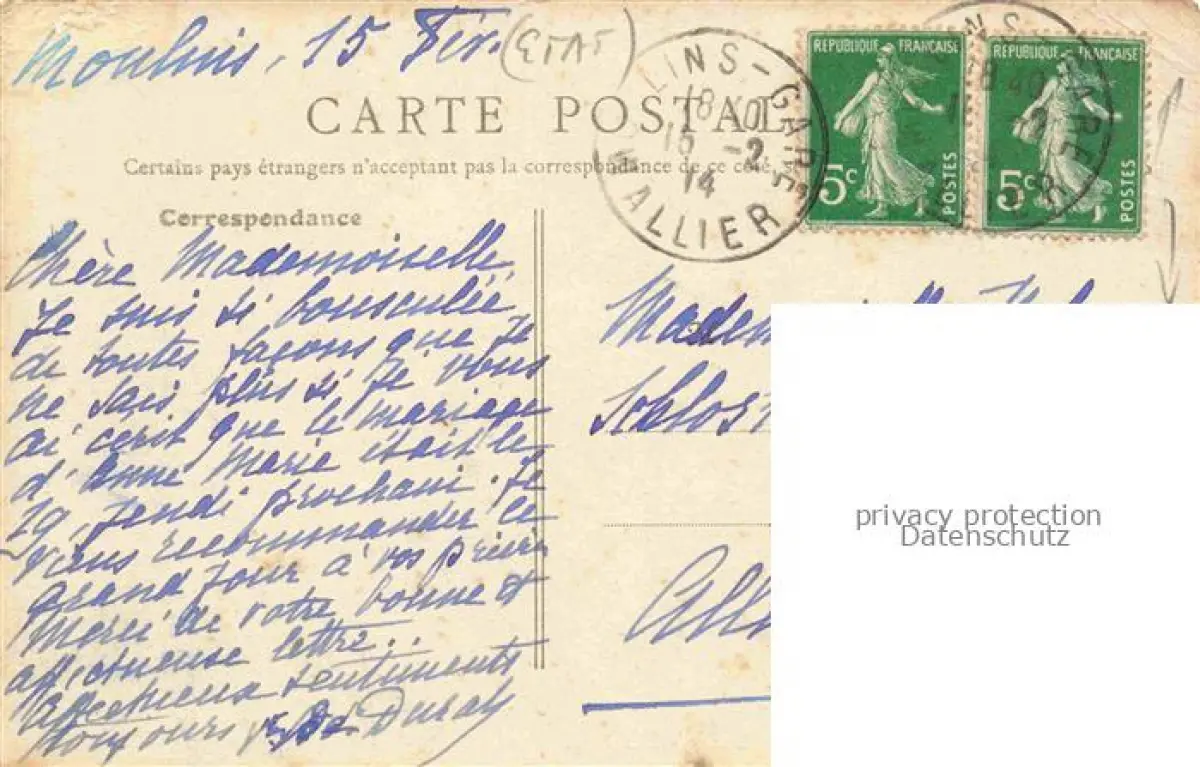 Moulins, 15 Fév.
(ETAT)
CARTE POSTAL
Certains pays étrangers n'acceptant pas la correspondance de ce côté
MOULINS-GARE
18 40
16 -2
14
ALLIER
REPUBLIQUE FRANÇAISE
5c POSTES
REPUBLIQUE FRANÇAISE
5c POSTES
Correspondance
Chère Mademoiselle,
Je suis si bousculée
de toutes façons que je
ne sais plus si je vous
ai écrit que le mariage
d'Anne Marie était le
19, Jendi prochain. Je
viens recommander ce
grand jour à vos prières
Merci de votre bonne et
affectueuse lettre..
affectueux sentiments
toujours
Duraly
Madem
Schloss
All
privacy protection
Datenschutz